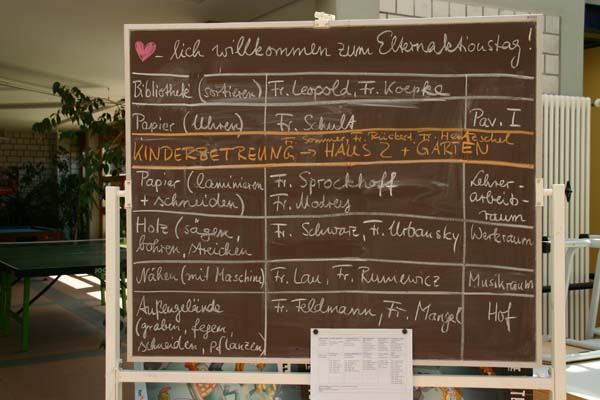 - lich willkommen zum Elternaktionstag!
Bibliothek (sortieren) Fr. Leopold, Fr. Koepke
Papier (Uhren) Fr. Schult Pav. I
Fr. Sommer, Fr. Rückert, Fr. Hentzschel
KINDERBETREUNG → HAUS 2 + GARTEN
Papier (laminieren Fr. Sprockhoff Lehrer-
+ schneiden) Fr. Modrey arbeits-
raum
Holz (sägen, Fr. Schwarz, Fr. Urbansky Werkraum
bohren, streichen
Nähen (mit Maschine) Fr. Lau, Fr. Rumewicz Musikraum
Außengelände Fr. Feldmann, Fr. Mangel Hof
(graben, fegen,
schneiden, pflanzen)